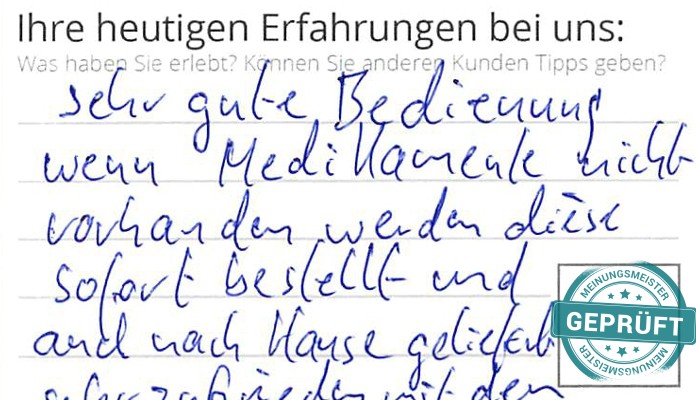 Ihre heutigen Erfahrungen bei uns:
Was haben Sie erlebt? Können Sie anderen Kunden Tipps geben?
sehr gute Bedienung
wenn Medikamente nicht
vorhanden werden diese
sofort bestellt und
and nach Hause geliefert
sehr zufrieden mit den
MEINUNGSMEISTER
GEPRÜFT
MEINUNGSMEISTER